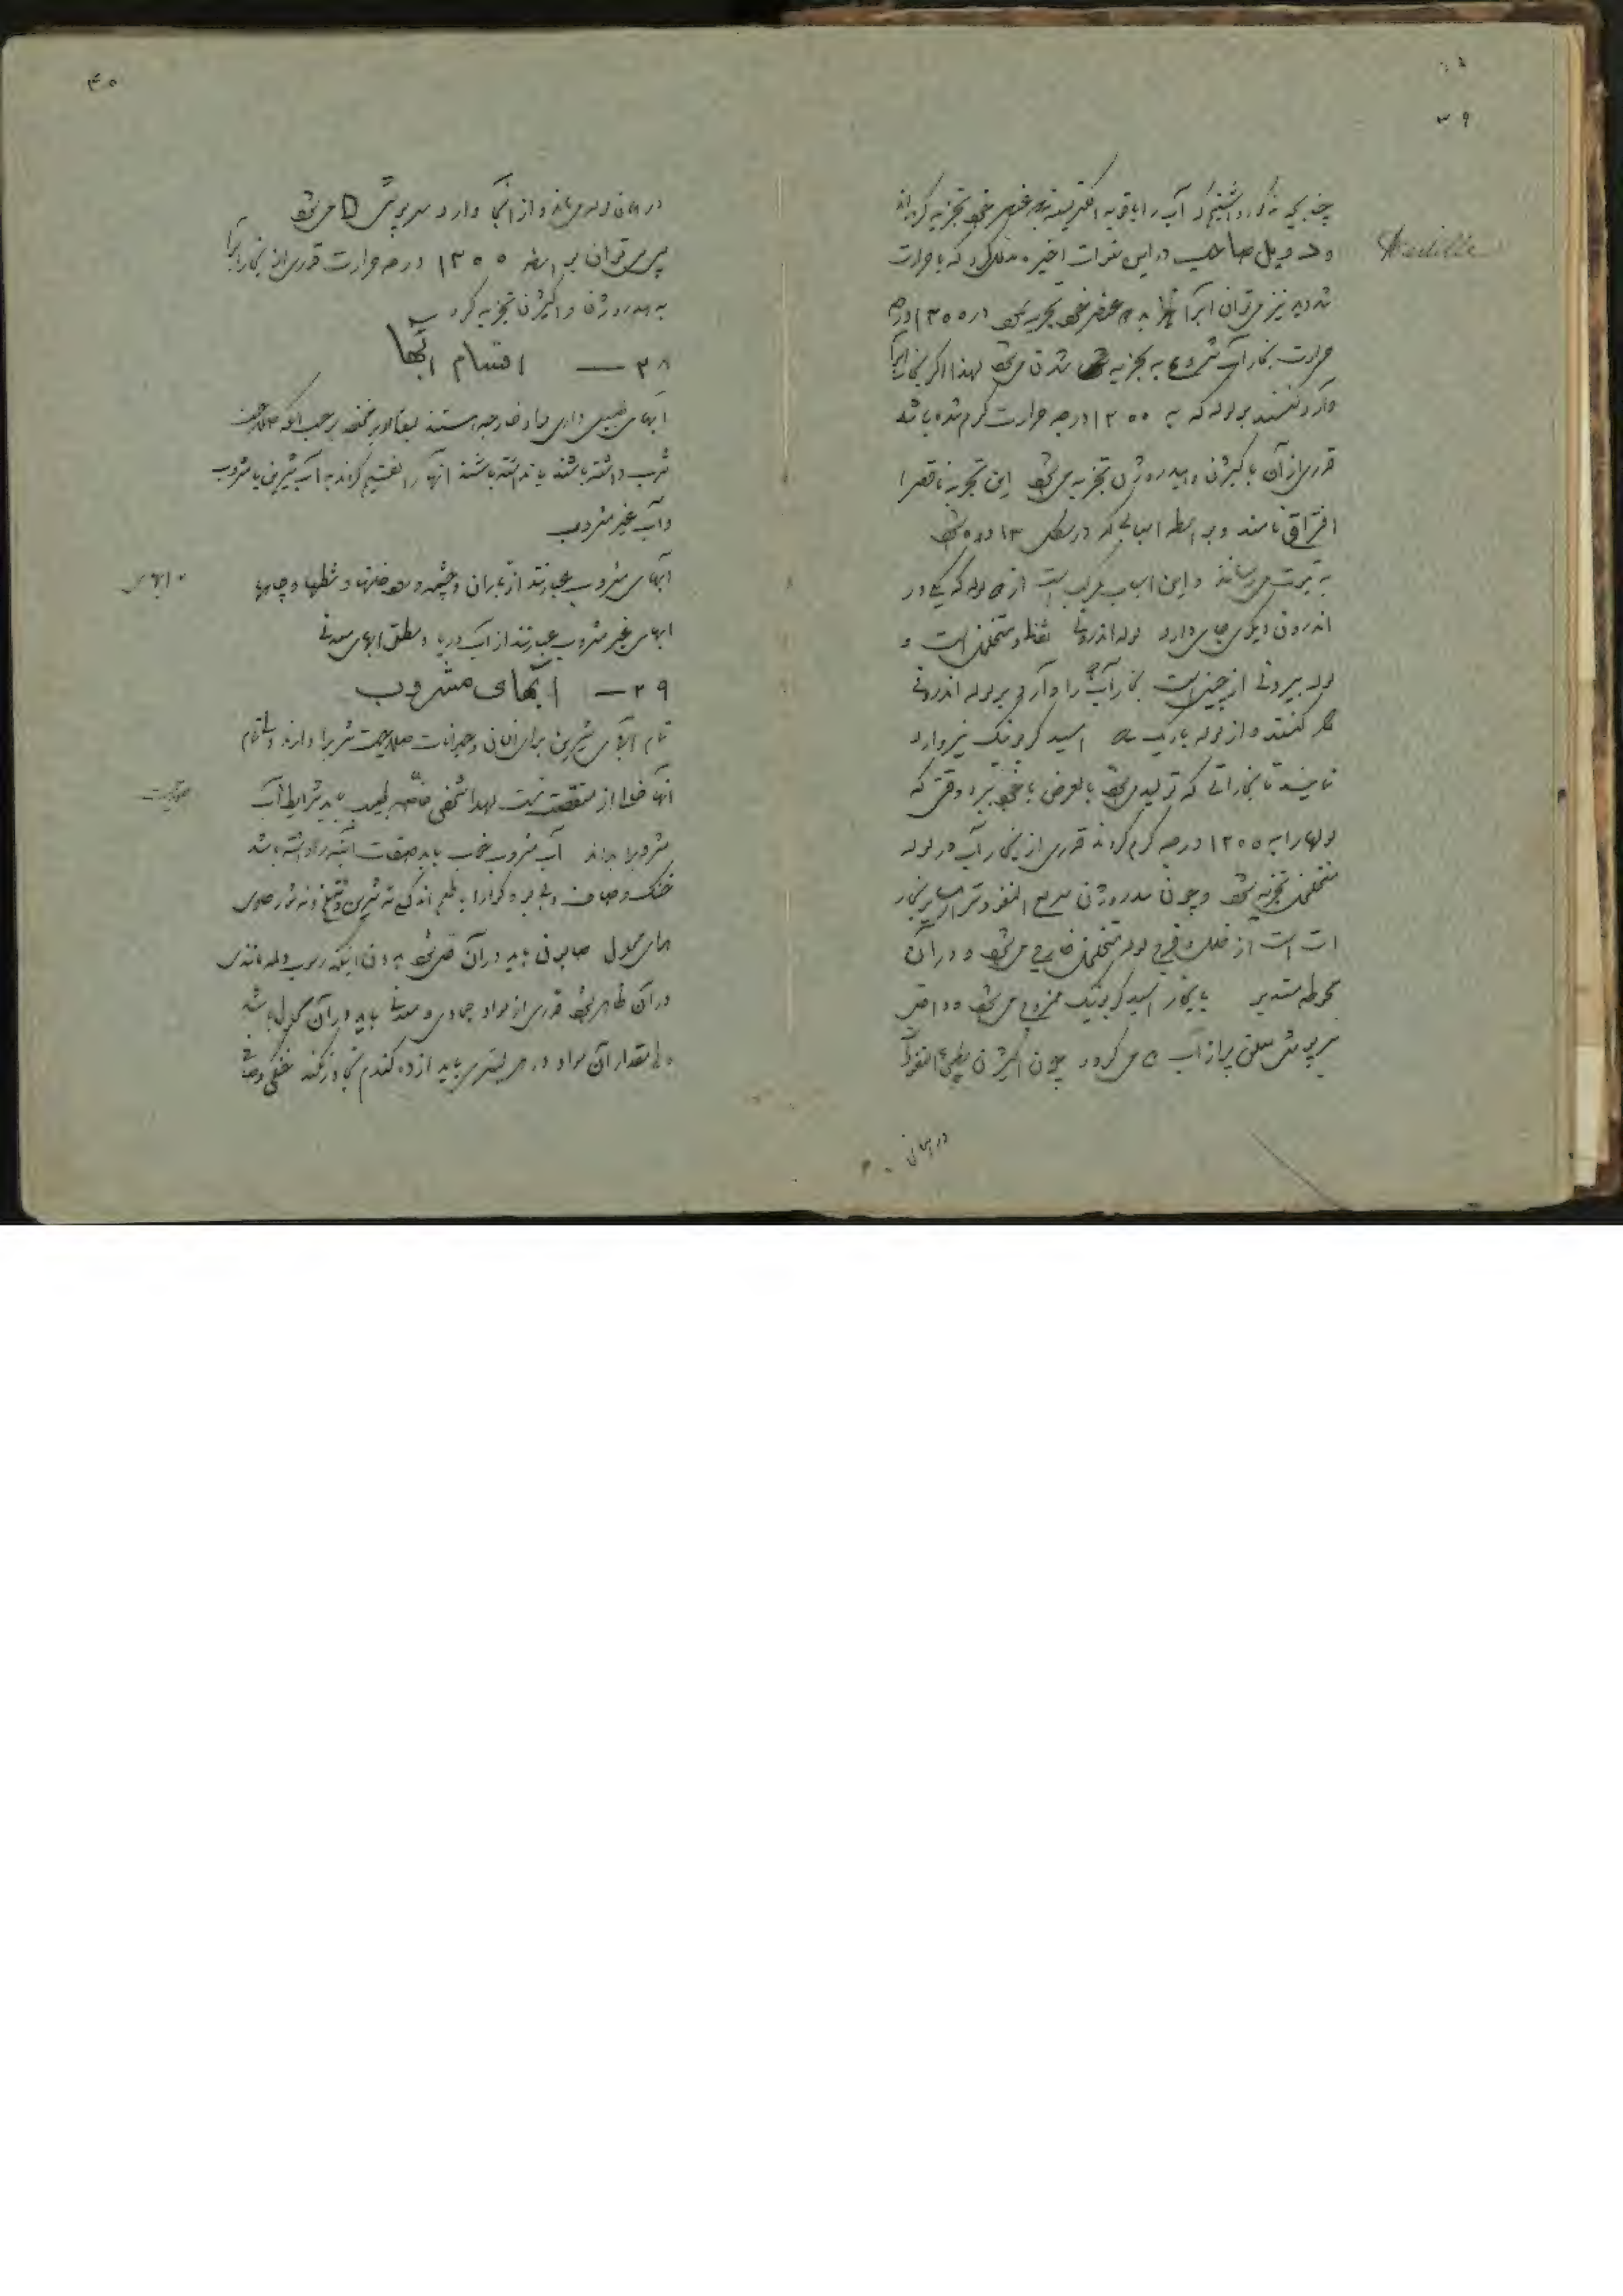 ۳۹
چنانچه مذکور داشتیم که آب را با قوه الکتریسته به عنصر خود تجزیه کرده‌اند
و دویل صاحب در این سنوات اخیر کرد که با حرارت
شدید نیز میتوان آبرا به ۲ عنصر خود تجزیه نمود در ۱۲۰۰ درجه
حرارت بخار آب شروع به تجزیه شدن میشود لهذا اگر بخار آبرا
وارد کنند بر لوله که به ۱۲۰۰ درجه حرارت گرم شده باشد
قدری از آن باکسیژن و هیدروژن تجزیه میشود این تجزیه ناقص را
افتراق نامند و بواسطه اسبابی که در شکل ۱۳
به ثبوت میرسانند و این اسباب مرکب است از ۲ لوله که یکی در
اندرون دیگری جای دارد لوله اندرونی متخلخل است و
لوله بیرونی از چینی است بخار آب را وارد بر لوله اندرونی
می‌کنند و از لوله باریک اسید کربونیک نیز وارد
نمایند تا بخاراتی که تولید میشود بالعرض با خود ببرد وقتی که
لولها را به ۱۲۰۰ درجه گرم کردند قدری از بخار آب در لوله
متخلخل تجزیه میشود و چون هیدروژن سریع النفوذتر از سایر بخار
ات است از خلل و فرج لوله متخلخل خارج میشود و در آن
محوطه مستدیر با بخار اسید کربونیک ممزوج میشود و داخل
سرپوش مملو پر از آب C می‌گردد چون اکسیژن بطیئ النفوذ است
در همان
۴۰
در همان لوله میماند و از آنجا وارد سرپوش D میشود
پس میتوان بواسطه ۱۲۰۰ درجه حرارت قدری از بخار آبرا
به هیدروژن و اکسیژن تجزیه کرد
۳۸ — اقسام آبها
آبهای طبیعی دارای مواد خارجه هستند بمقادیر مختلفه بر حسب آنکه صلاحیت
شرب داشته باشند یا نداشته باشند آنها را تقسیم کرده‌اند به آب شیرین یا مشروب
و آب غیر مشروب
آبهای مشروب عبارتند از باران و چشمه و حوضها و شطها و چاهها
آبهای غیر مشروب عبارتند از آب دریا و مطلق آبهای معدنی
۳۹ — آبهای مشروب
تمام آبهای شیرین برای انسانی و حیوانات صلاحیت شرب را دارند ولی تمام
آنها خالی از منقصت نیست لهذا شخص خاصه طبیب باید شرایط آب
مشروب را بداند آب مشروب خوب باید صفات آتیه را داشته باشد
خنک و صاف و بی بو و گوارا با طعم اندکی نه شیرین و نه تلخ و نه شور
محلول صابونی باید در آن حل شود بدون اینکه رسوب
در آن ظاهر شود قدری از مواد جمادی و معدنی باید در آن محلول باشد
ولی مقدار آن مواد در هر لیتری باید از ده گندم تجاوز نکند خنکی و صافی